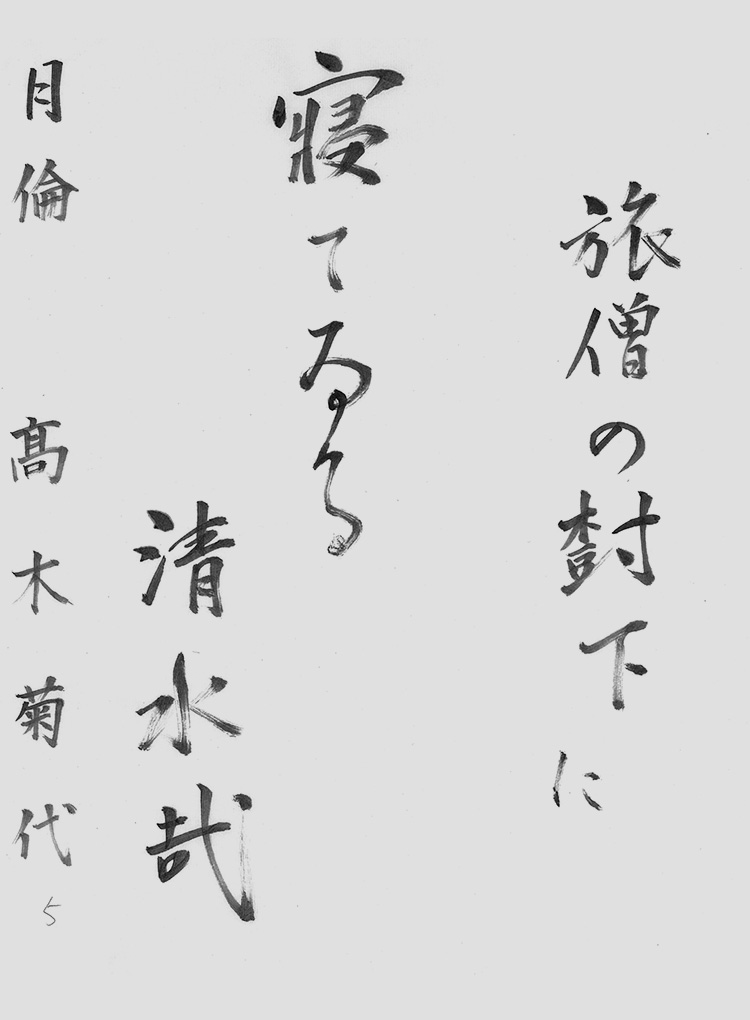 旅僧の樹下に
寝てゐる
清水哉
月倫 髙木菊代 5